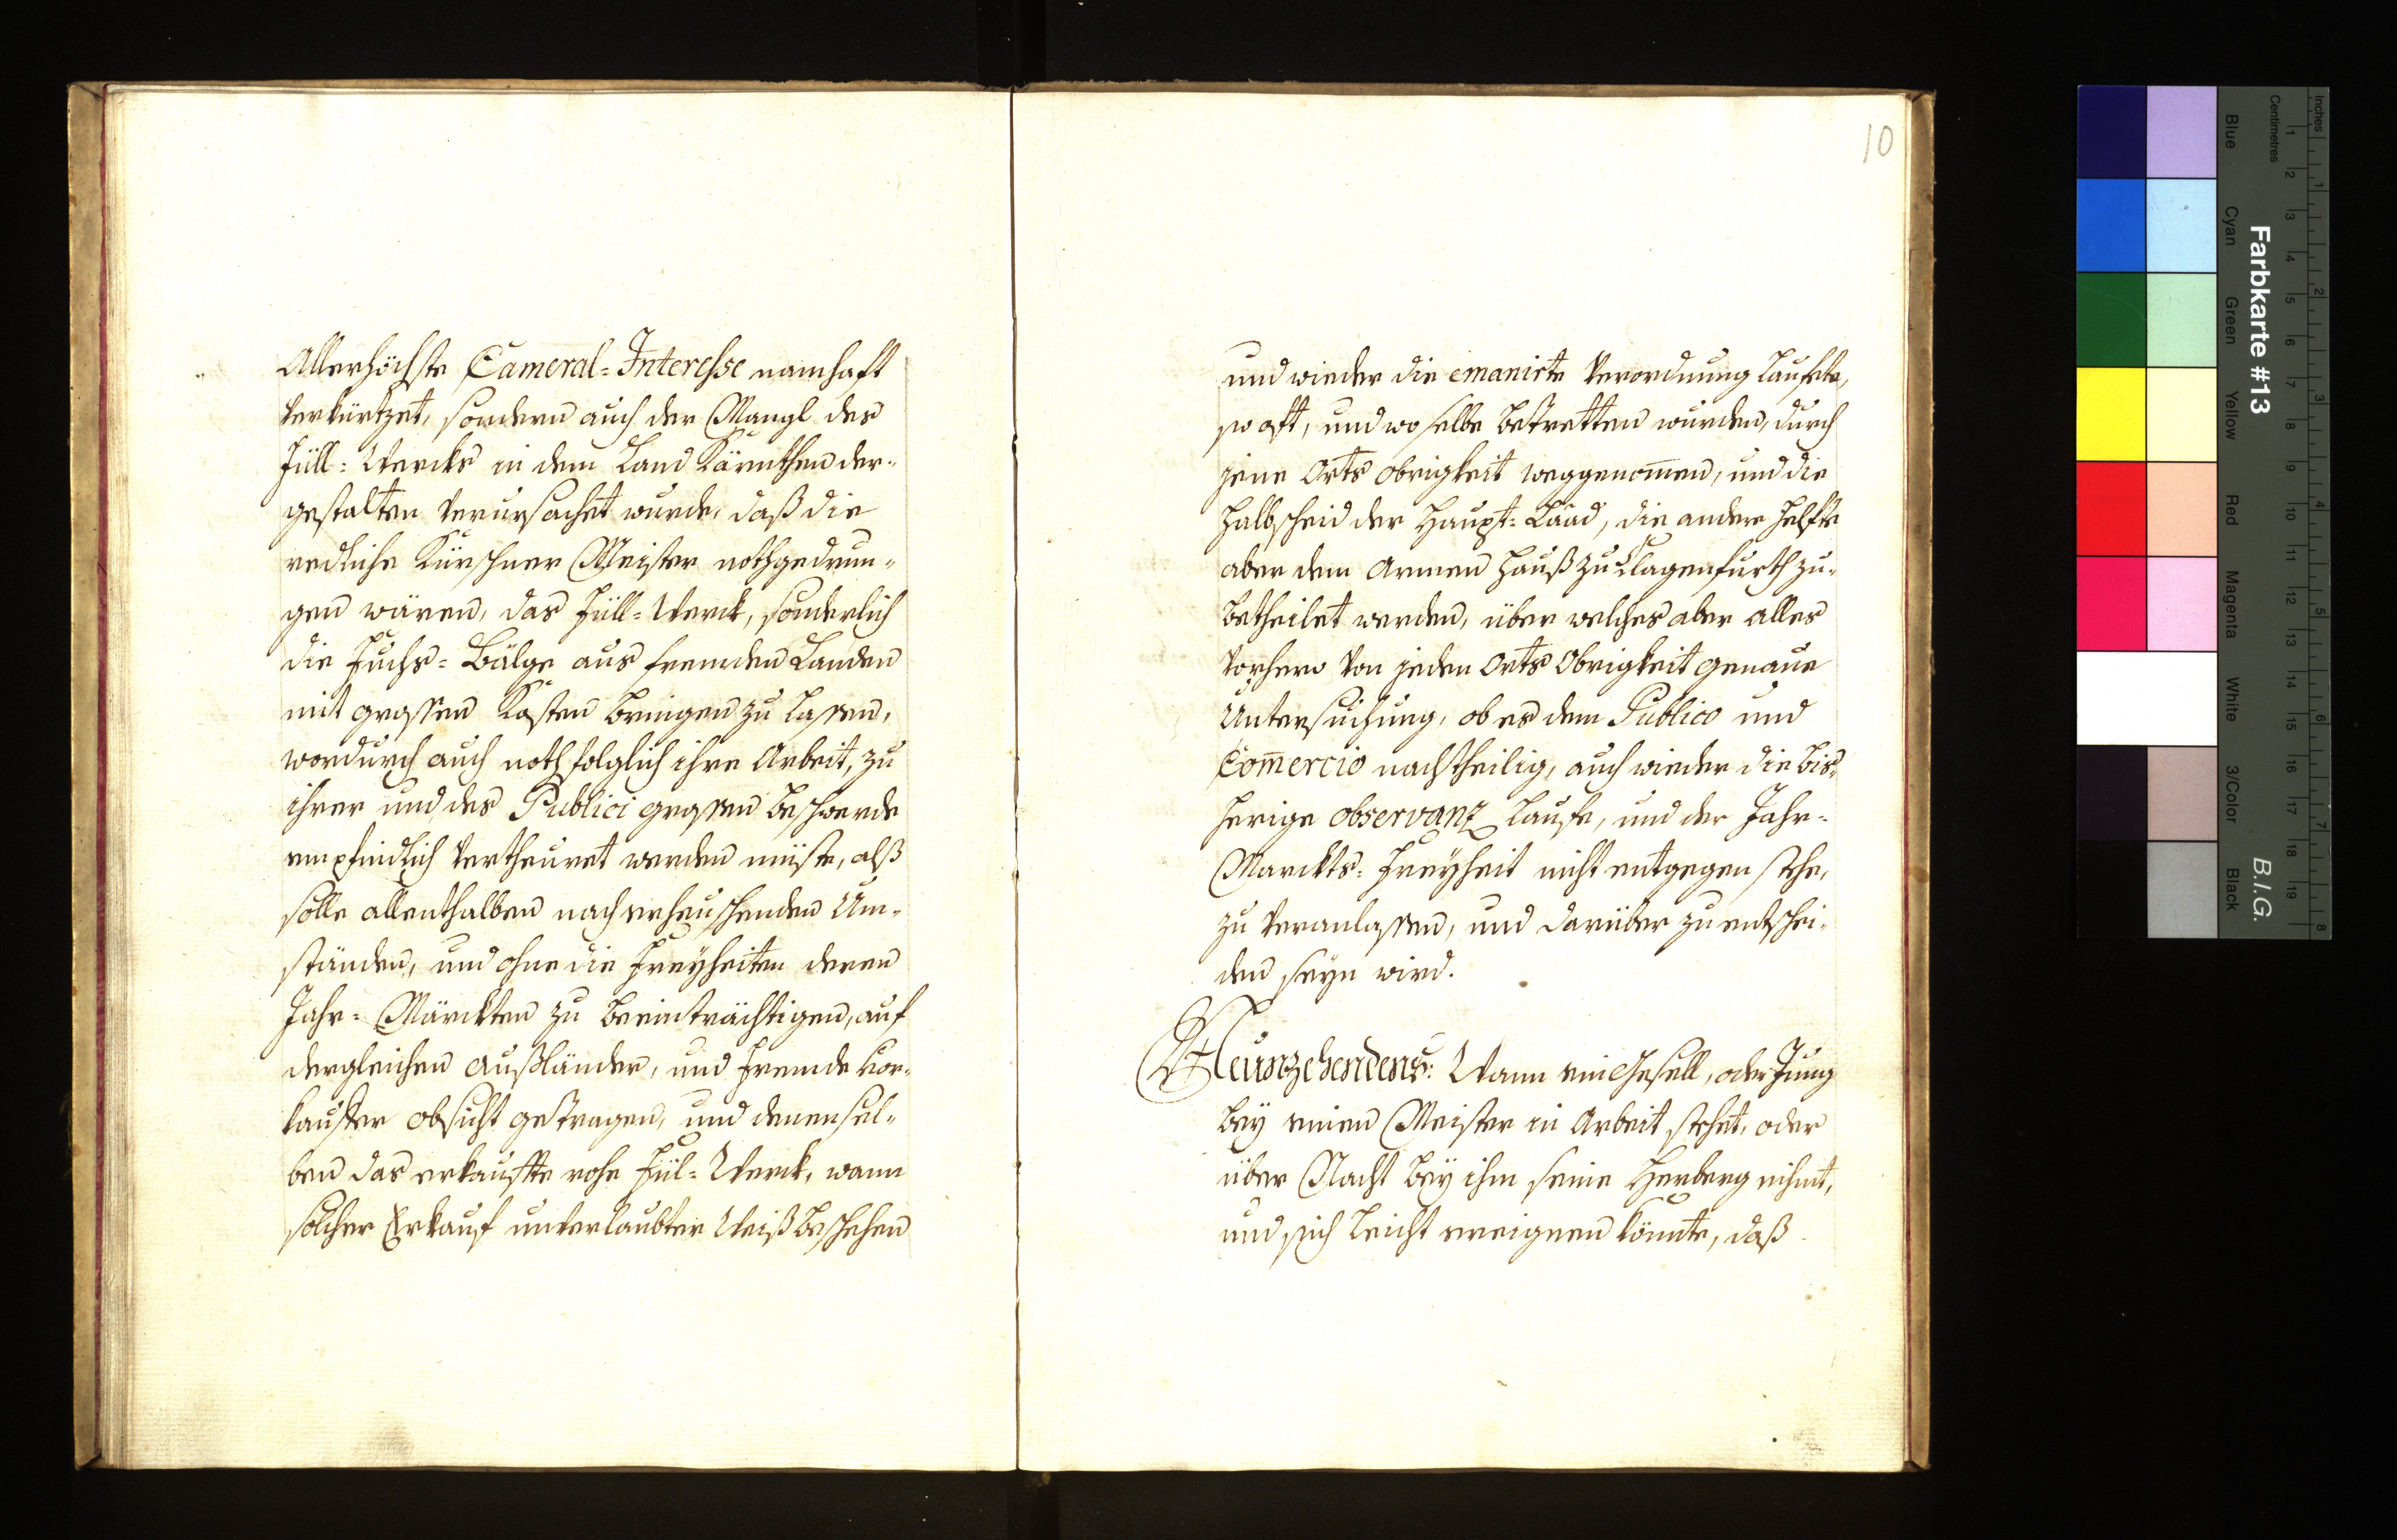 Allerhöchste Cameral=Interesse namhaft
verkürtzet, sondern auch der Mangl des
Füll=Wercks in dem Land Kärnthen der=
gestalten verursachet wurde, daß die
redliche Kürschner Meister nothgedrun=
gen wären, das Füll=Werck, sonderlich
die Fuchs=Bälge aus fremden Landen
mit grossen Kosten bringen zu lassen,
wordurch auch nothfolglich ihre Arbeit, zu
ihrer und des Publici grossen beschwerde
empfindlich vertheuret werden müste, alß
solle allenthalben nach erheischenden Um=
ständen, und ohne die Freyheiten deren
Jahr=Märckten zu beeinträchtigen, auf
dergleichen außländer, und Fremde vor=
kauffer obsicht getragen, und denensel=
ben das erkauffte rohe Fül=Werck, wann
solcher Erkauf unterlaubter Weiß beschehen
10
und wieder die emanirte Verordnung lauffete,
so oft, und wo selbe betretten wurden, durch
jene Orts obrigkeit weggenom̄en, und die
Halbscheid der Haupt=Laad, die andere Helfte
aber dem Armen Hauß zu Clagenfurth zu=
betheilet werden, über welches aber alles
vorhero von jeden Orts Obrigkeit genaue
Untersuchung, ob es dem Publico und
Com̄ercio nachtheilig, auch wieder die bis=
herige observanz lauffe, und der Jahr=
Marckts=Freyheit nicht entgegen stehe,
zu veranlassen, und darüber zu entschei=
den seyn wird.
Neunzehendens: Wann ein Gesell, oder Jung
bey einen Meister in Arbeit stehet, oder
über Nacht bey ihm seine Herberg nihmt,
und sich leicht ereignen könnte, daß
Inches
Centimetres
Farbkarte #13
B.I.G.
Blue
Cyan
Green
Yellow
Red
Magenta
White
3/Color
Black